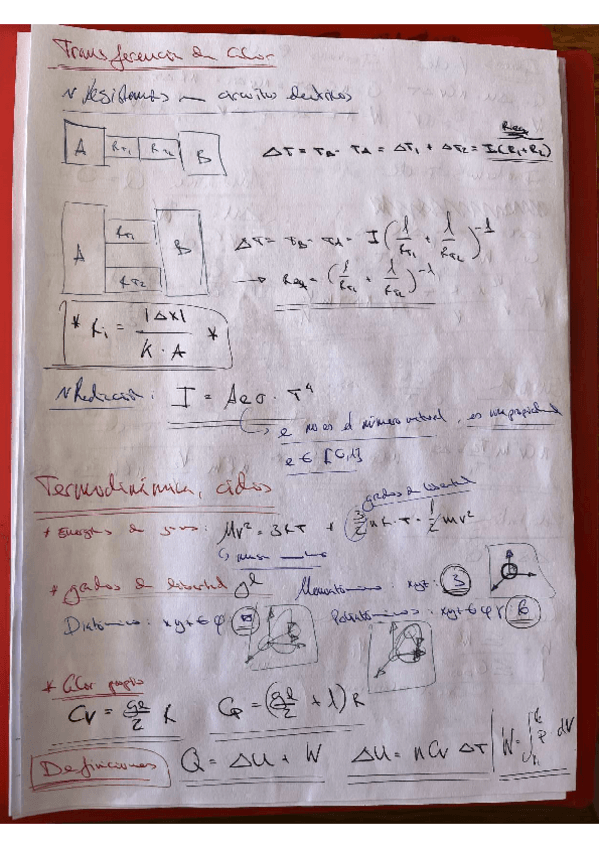 Transferencia de Calor
Resistencias — circuitos eléctricos
A RT1 RT2 B
Req
ΔT = TB - TA = ΔT1 + ΔT2 = I(R1+R2)
A RT1 B
RT2
ΔT = TB - TA = I (1/RT1 + 1/RT2)^-1
→ Req = (1/RT1 + 1/RT2)^-1
* Ri = |Δx| / K · A *
Radiación: I = Aeσ · T^4
e no es el número natural, es una propiedad
e ∈ [0,1]
Termodinámica, ciclos
grados de libertad
* Energías de gases: Mv² = 3kT + 3/2 nk·T = 1/2 mv²
* grados de libertad gl Monoatómico: xyz: 3
Diatómico: xyz θ φ 5 Poliatómicos: xyz θ φ γ 6
* Calor
Cv = gl/2 R Cp = (gl/2 + 1) R
Definiciones Q = ΔU + W ΔU = nCv ΔT W = ∫ P dV